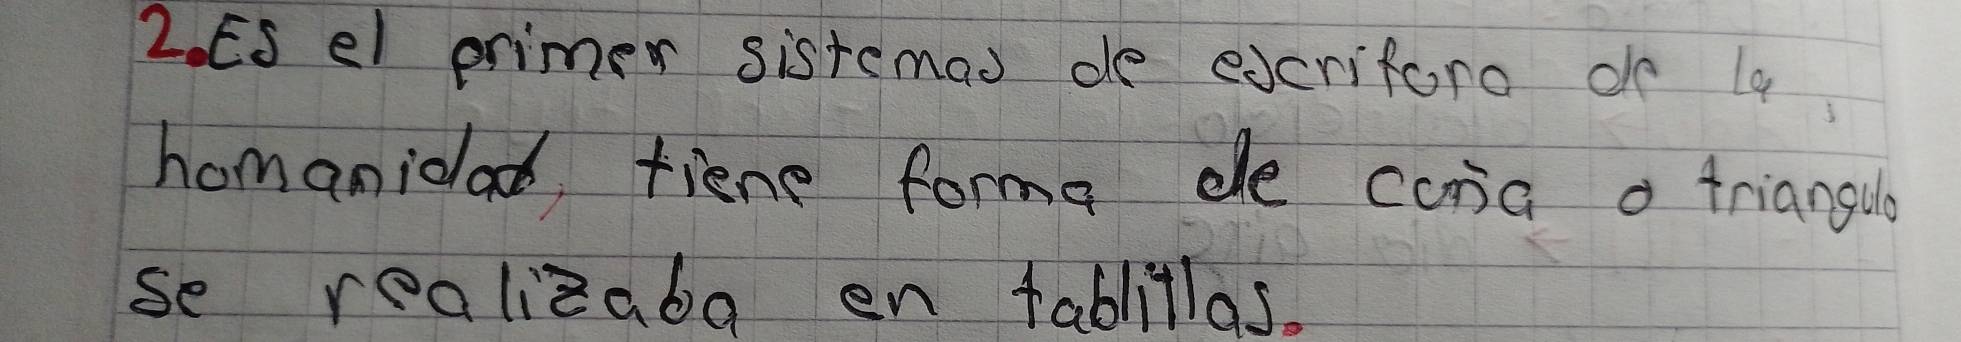 2. Es el primer sistemas de escritura de la
humanidad, tiene forma de cuña o triangulo
se realizaba en tablillas.